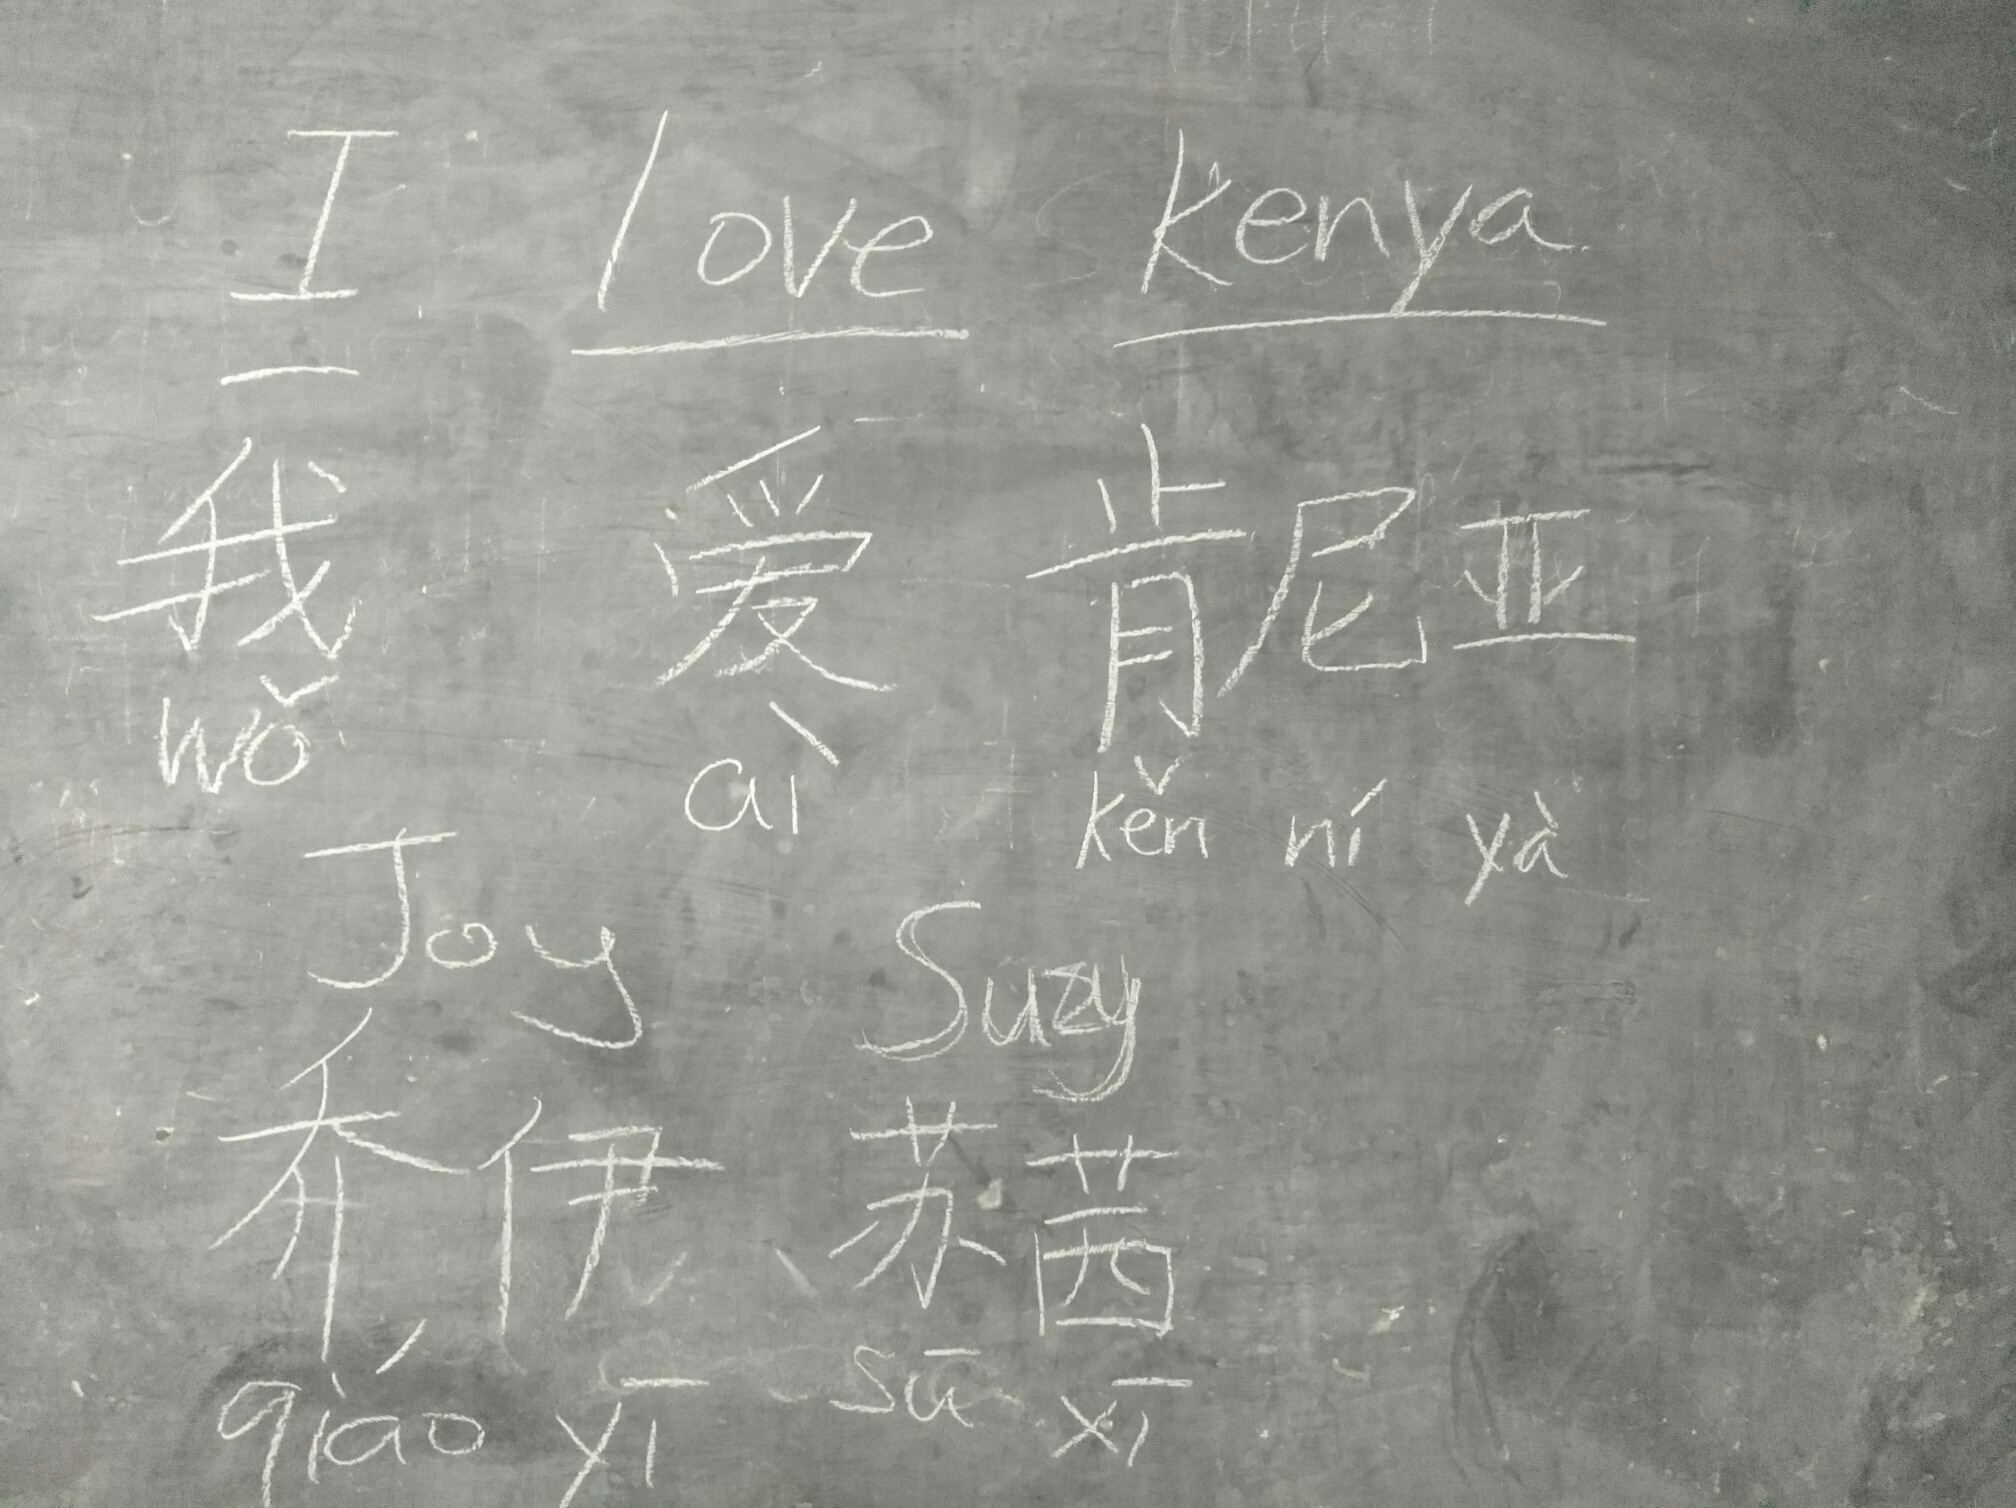 I love kenya
我 爱 肯尼亚
wǒ ài kěn ní yà
Joy Suzy
乔伊 苏茜
qiáo yī sū xī